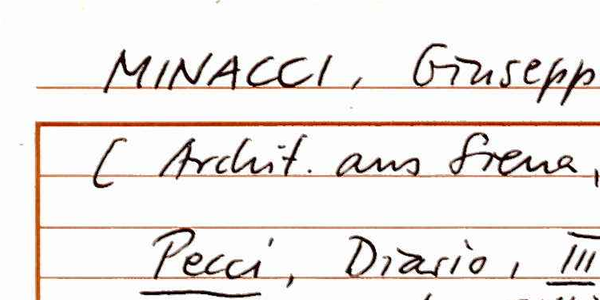 MINACCI, Giusepp
( Archit. aus Siena,
Pecci, Diario, III